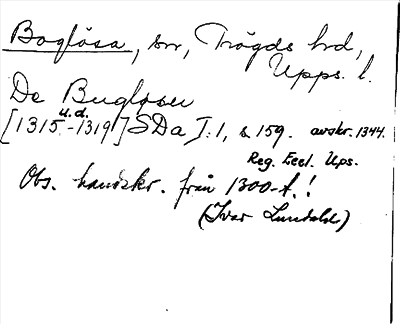 Boglösa, sn, Trögds hd,
Upps. l.
De Bugløsu
u.d.
[1315-1319] SDa I:1, s. 159. avskr. 1344.
Reg. Eccl. Ups.
Obs. handskr. från 1300-t.!
(Ivar Lundahl)